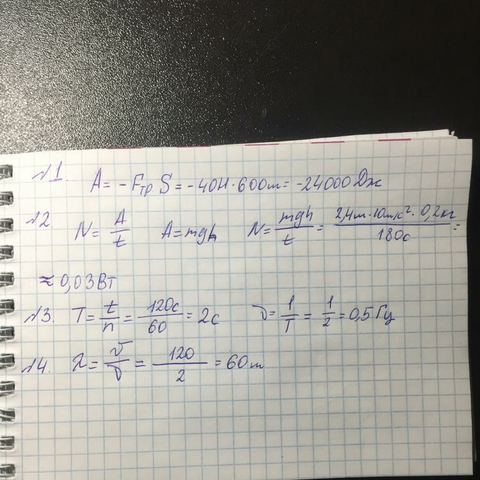 №1. A = -Fтр S = -40Н·600m = -24000 Дж
№2 N = A/t A = mgh N = mgh/t = 2,4m·10m/c²·0,2кг/180c =
≈ 0,03Вт
№3. T = t/n = 120c/60 = 2c ν = 1/T = 1/2 = 0,5 Гц
№4. λ = v/ν = 120/2 = 60m